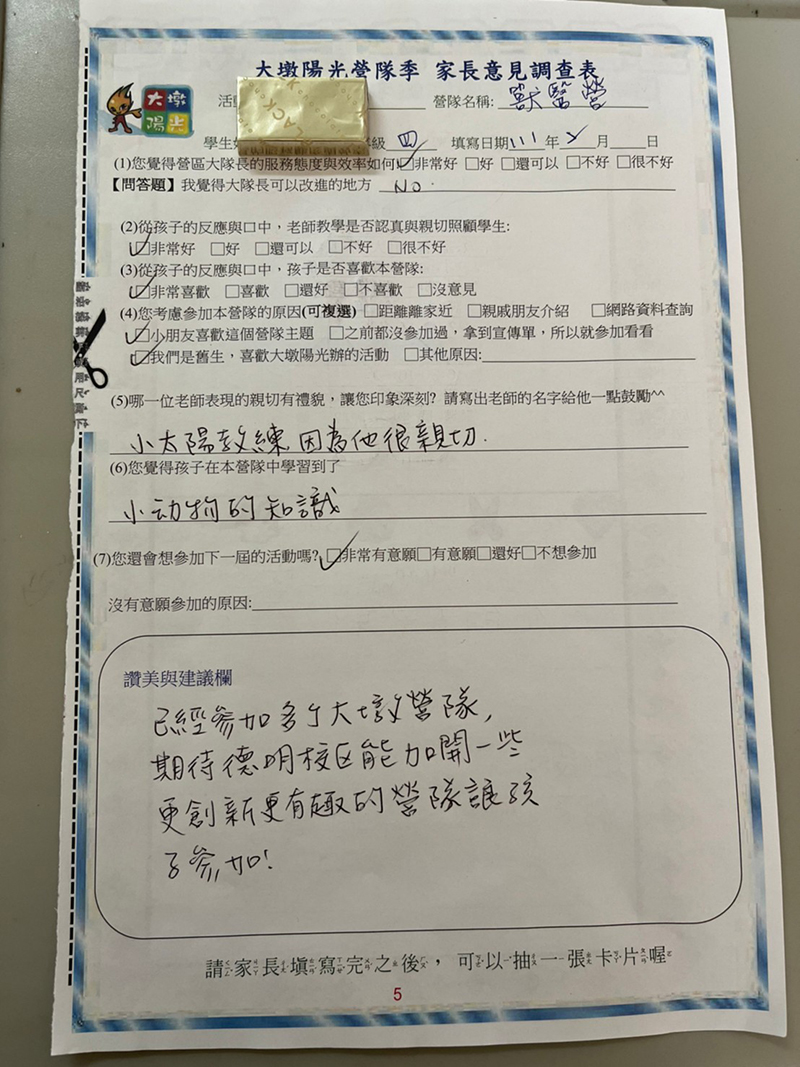 大墩陽光營隊季 家長意見調查表
大墩
陽光
活 營隊名稱: 獸醫營
學生 級 四 填寫日期 111 年 月 日
(1)您覺得營區大隊長的服務態度與效率如何 □非常好 □好 □還可以 □不好 □很不好
【問答題】我覺得大隊長可以改進的地方 NO.
(2)從孩子的反應與口中，老師教學是否認真與親切照顧學生:
□非常好 □好 □還可以 □不好 □很不好
(3)從孩子的反應與口中，孩子是否喜歡本營隊:
□非常喜歡 □喜歡 □還好 □不喜歡 □沒意見
(4)您考慮參加本營隊的原因(可複選) □距離離家近 □親戚朋友介紹 □網路資料查詢
□小朋友喜歡這個營隊主題 □之前都沒參加過，拿到宣傳單，所以就參加看看
□我們是舊生，喜歡大墩陽光辦的活動 □其他原因:
(5)哪一位老師表現的親切有禮貌，讓您印象深刻? 請寫出老師的名字給他一點鼓勵^^
小太陽教練 因為他很親切.
(6)您覺得孩子在本營隊中學習到了
小动物的知識
(7)您還會想參加下一屆的活動嗎? □非常有意願□有意願□還好□不想參加
沒有意願參加的原因:
讚美與建議欄
已經參加多个大墩營隊,
期待德明校区能加開一些
更創新更有趣的營隊讓孩
子參加!
請家長填寫完之後，可以抽一張卡片喔
5